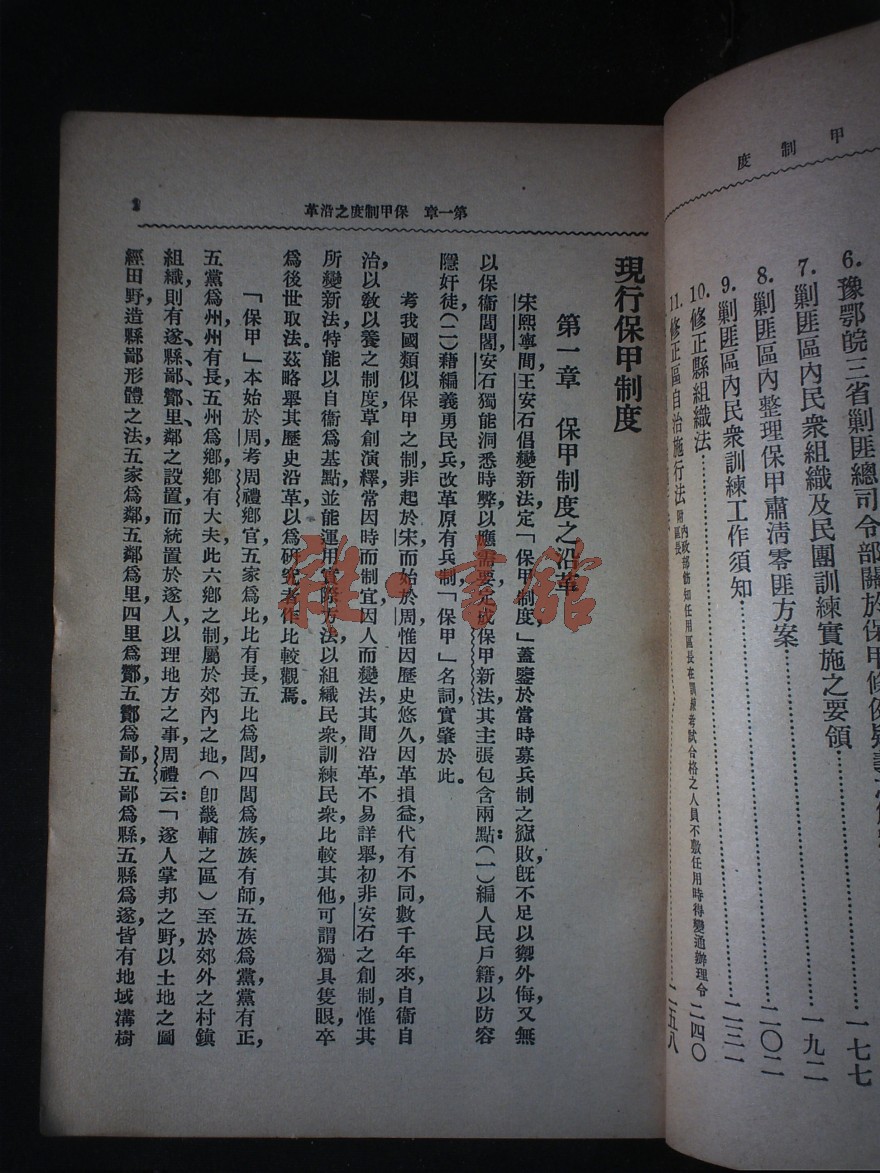 甲制度
6. 豫鄂皖三省剿匪總司令部關於保甲條例疑義 一七七
7. 剿匪區內民衆組織及民團訓練實施之要領 一九二
8. 剿匪區內整理保甲肅清零匪方案 二〇二
9. 剿匪區內民衆訓練工作須知 二三一
10. 修正縣組織法 二四〇
11. 修正區自治施行法 附內政部飭知任用區長在訓練考試合格之人員不敷任用時得變通辦理令 二五八
第一章 保甲制度之沿革 1
現行保甲制度
第一章 保甲制度之沿革
宋熙寧間，王安石倡變新法，定「保甲制度」，蓋鑒於當時募兵制之窳敗，既不足以禦外侮，又無
以保衞閭閻，安石獨能洞悉時弊，以應需要，完成保甲新法，其主張包含兩點：（一）編人民戶籍，以防容
隱奸徒，（二）藉編義勇民兵，改革原有兵制，「保甲」名詞，實肇於此。
考我國類似保甲之制，非起於宋，而始於周，惟因歷史悠久，因革損益，代有不同，數千年來，自衞自
治，以敎以養之制度，草創演繹，常因時而制宜，因人而變法，其間沿革，不易詳舉，初非安石之創制，惟其
所變新法，特能以自衞爲基點，並能運用實際方法，以組織民衆，訓練民衆，比較其他，可謂獨具隻眼，卒
爲後世取法。茲略舉其歷史沿革，以爲研究者作比較觀焉。
「保甲」本始於周，考周禮鄉官，五家爲比，比有長，五比爲閭，四閭爲族，族有師，五族爲黨，黨有正，
五黨爲州，州有長，五州爲鄉，鄉有大夫，此六鄉之制，屬於郊內之地（卽畿輔之區）至於郊外之村鎮
組織，則有遂、縣、鄙、酇、里、鄰之設置，而統置於遂人，以理地方之事，周禮云：「遂人掌邦之野，以土地之圖
經田野，造縣鄙形體之法，五家爲鄰，五鄰爲里，四里爲酇，五酇爲鄙，五鄙爲縣，五縣爲遂，皆有地域溝樹
雜·書館